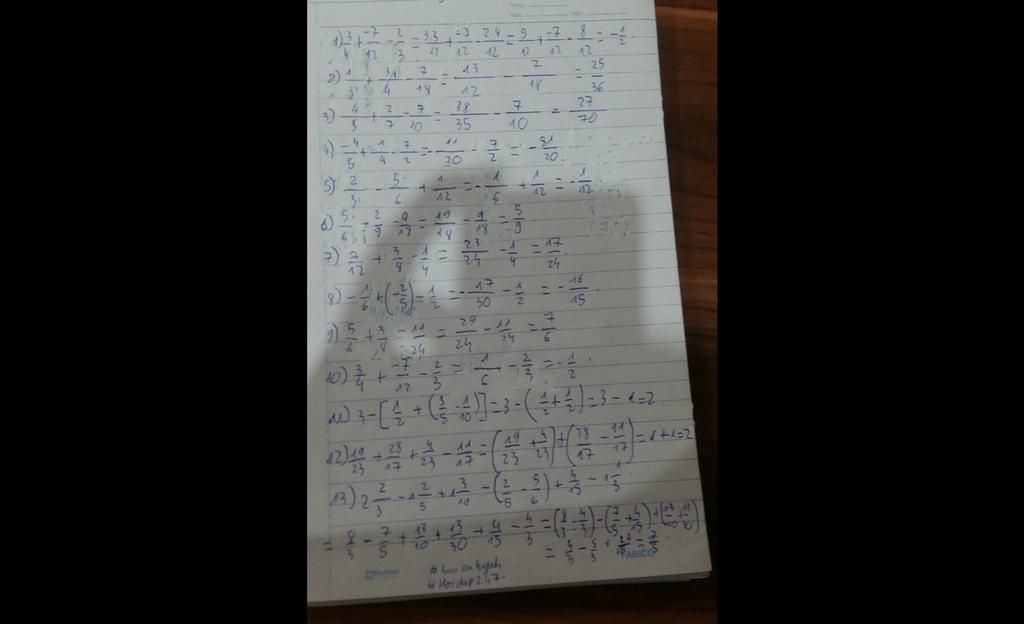 1) 3/4 + -7/12 - 2/3 = 3.3/12 + -7/12 - 2.4/12 = 9/12 + -7/12 - 8/12 = -1/2.
2) 1/3 + 3/4 - 7/18 = 13/12 - 7/18 = 25/36
3) 4/5 + 2/7 - 7/10 = 38/35 - 7/10 = 27/70
4) -4/5 + 1/4 - 7/2 = -11/20 - 7/2 = -81/20.
5) 2/3 - 5/6 + 1/12 = -1/6 + 1/12 = -1/12.
6) 5/6 + 2/9 - 9/18 = 19/18 - 9/18 = 5/9
7) 7/12 + 3/8 - 1/4 = 23/24 - 1/4 = 17/24.
8) -1/6 + (-2/5) - 1/2 = -17/30 - 1/2 = -16/15.
9) 5/6 + 3/8 - 11/24 = 29/24 - 11/24 = 7/6
10) 3/4 + -7/12 - 2/3 = 1/6 - 2/3 = -1/2.
11) 3 - [1/2 + (3/5 - 1/10)] = 3 - (1/2 + 1/2) = 3 - 1 = 2.
12) 19/23 + 28/17 + 4/23 - 11/17 = (19/23 + 4/23) + (28/17 - 11/17) = 1 + 1 = 2
13) 2 2/3 - 1 2/5 + 1 3/10 - (2/5 - 5/6) + 4/15 - 1 1/3
= 8/3 - 7/5 + 13/10 + 13/30 + 4/15 - 4/3 = (8/3 - 4/3) - (7/5 + 4/15) + (13/10 + 13/30)
= 4/3 - 5/3 + 26/15 = 7/5.
# Hoidap247